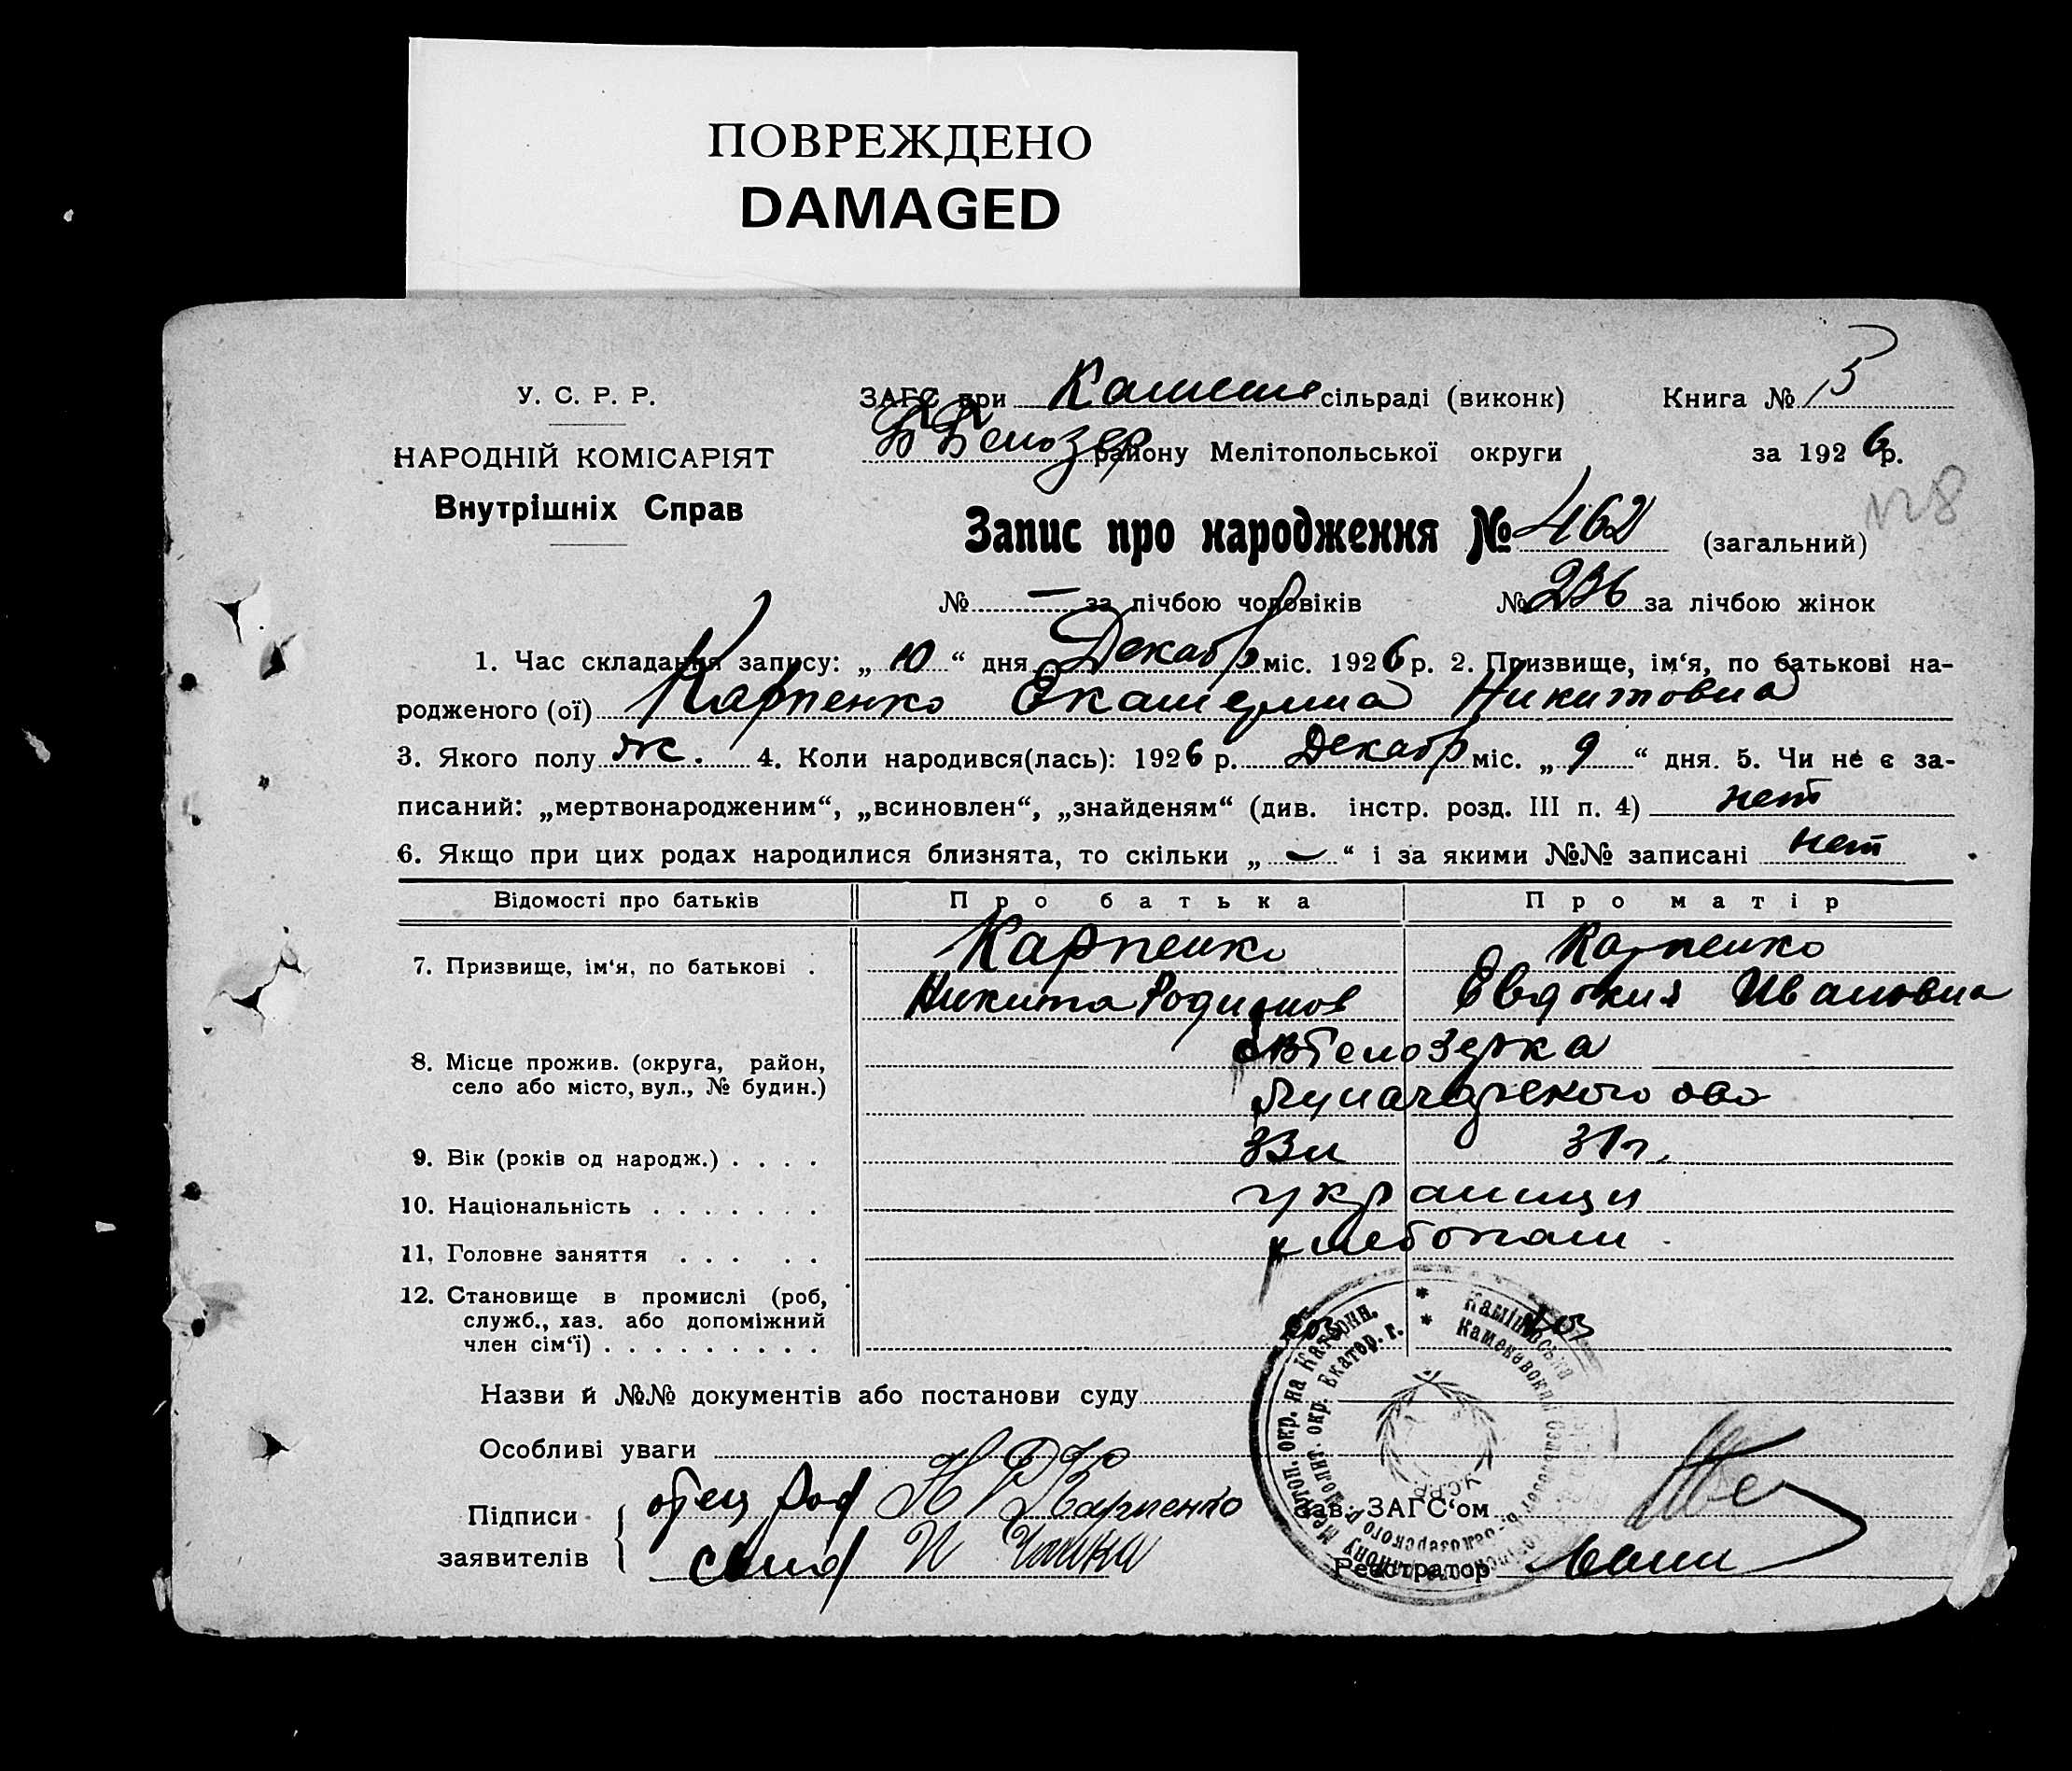 ПОВРЕЖДЕНО
DAMAGED
У. С. Р. Р.
НАРОДНІЙ КОМІСАРІЯТ
Внутрішніх Справ
ЗАГС при Камен сільраді (виконк)
Б Белозер району Мелітопольської округи
Книга №
за 1926 р.
№ 8
Запис про народження № 462 (загальний)
№ — за лічбою чоловіків № 236 за лічбою жінок
1. Час складання запису: „ 10 “ дня Декабр міс. 1926 р. 2. Призвище, ім‘я, по батькові на-
родженого (ої) Карпенко Екатерина Никитовна
3. Якого полу ж. 4. Коли народився(лась): 1926 р. Декабр міс. „ 9 “ дня. 5. Чи не є за-
писаний: „мертвонародженим“, „всиновлен“, „знайденям“ (див. інстр. розд. III п. 4) нет
6. Якщо при цих родах народилися близнята, то скільки „ — “ і за якими №№ записані нет
Відомості про батьків Про батька Про матір
7. Призвище, ім‘я, по батькові . Карпенко Карпенко
Никита Родионов Евдокия Ивановна
8. Місце прожив. (округа, район, Белозерка
село або місто, вул., № будин.) Луначарского
9. Вік (років од народж.) . . . . 33 31 г.
10. Національність . . . . . . . украинци
11. Головне заняття . . . . . хлебопаш
12. Становище в промислі (роб,
служб., хаз. або допоміжний
член сім‘ї) . . . . . . . . .
хоз хоз
Назви й №№ документів або постанови суду
Особливі уваги
Підписи отец Н Р Карпенко
заявителів
Зав. ЗАГС‘ом
Реєстратор
Камінівська
Мелітоп. окр. на Катеринк.
Мелит. окр. Екатер. г.
УСРР